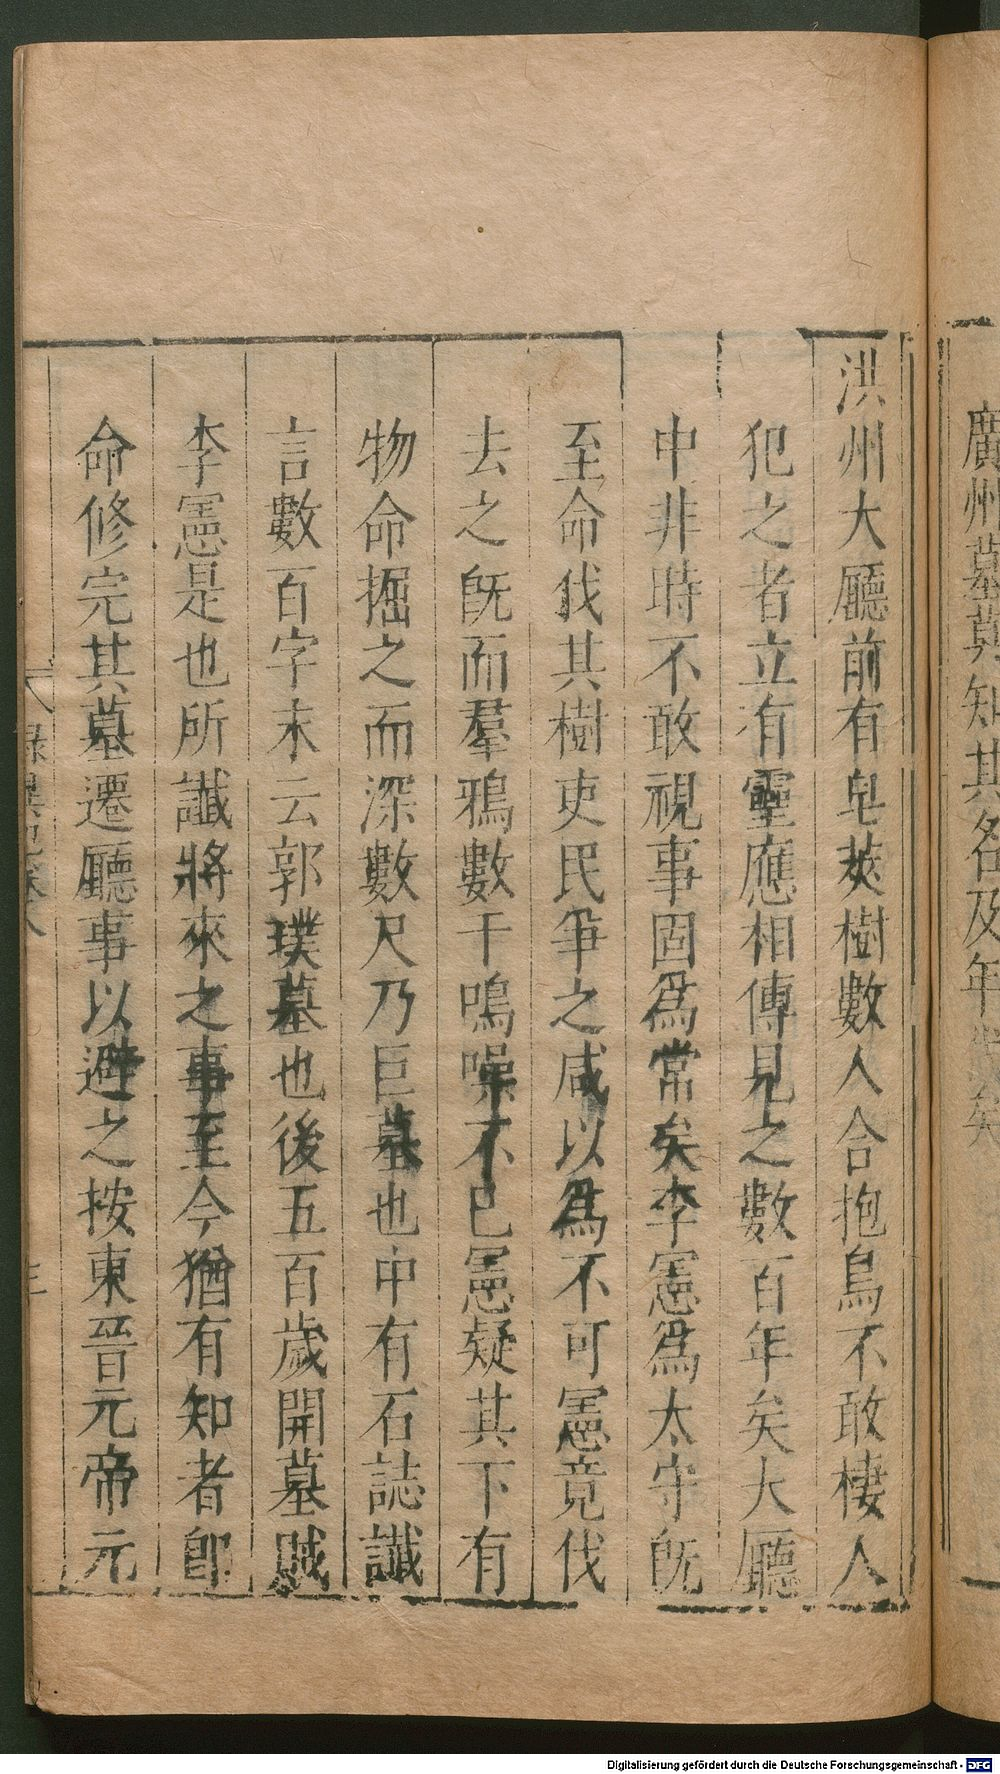 廣州墓莫知其名及年
矣
洪州大廳前有皂莢樹數人合抱鳥不敢棲人
犯之者立有靈應相傳見之數百年矣大廳
中非時不敢視事固爲常矣李憲爲太守旣
至命伐其樹吏民爭之咸以爲不可憲竟伐
去之旣而羣鴉數千鳴噪不已憲疑其下有
物命掘之而深數尺乃巨墓也中有石誌讖
言數百字末云郭璞墓也後五百歲開墓賊
李憲是也所讖將來之事至今猶有知者卽
命修完其墓遷廳事以避之按東晉元帝元
錄異記卷八
Digitalisierung gefördert durch die Deutsche Forschungsgemeinschaft - DFG